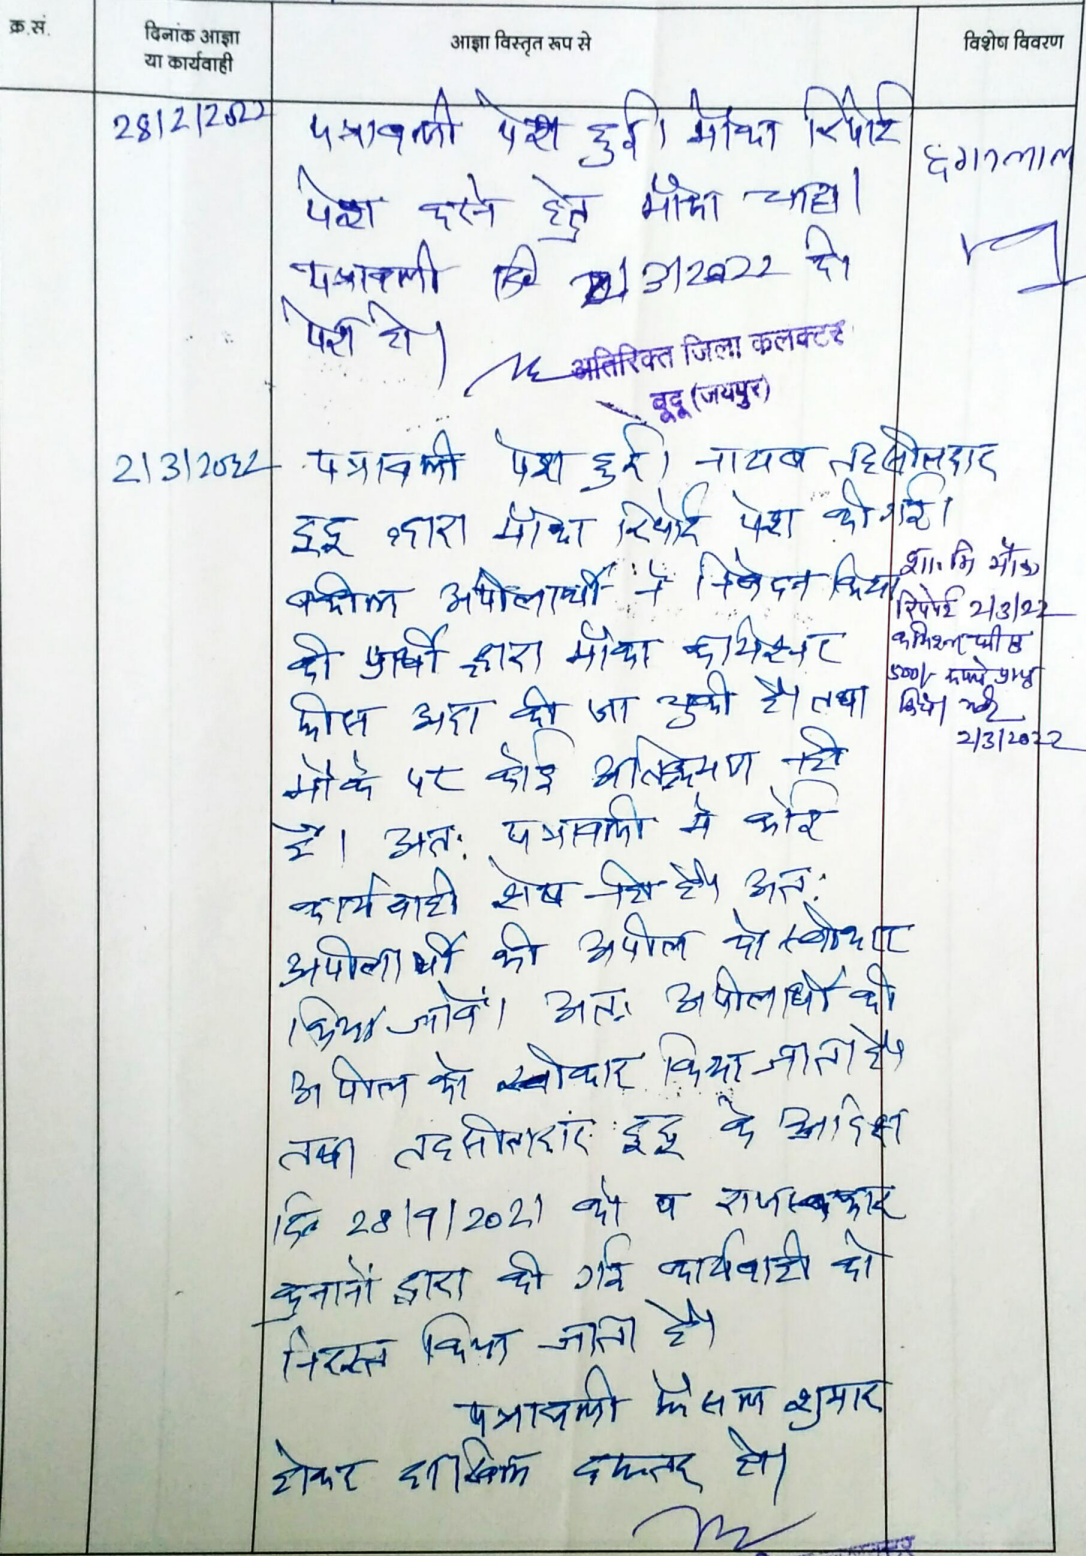 क्र.सं.
दिनांक आज्ञा
या कार्यवाही
आज्ञा विस्तृत रूप से
विशेष विवरण
28/2/2022
पत्रावली पेश हुई। मौका रिपोर्ट
पेश करने हेतु मौका चाहा।
पत्रावली दि 2/3/2022 को
पेश हो।
छगनलाल
अतिरिक्त जिला कलक्टर
दूदू (जयपुर)
2/3/2022
पत्रावली पेश हुई। नायब तहसीलदार
दूदू द्वारा मौका रिपोर्ट पेश की गई।
वकील अपीलार्थी ने निवेदन किया
की प्रार्थी द्वारा मौका कमिश्नर
फीस अदा की जा चुकी है। तथा
मौके पर कोई अतिक्रमण नही
है। अतः पत्रावली मे कोई
कार्यवाही शेष नही है। अतः
अपीलार्थी की अपील को स्वीकार
किया जावें। अतः अपीलार्थी की
अपील को स्वीकार किया जाता है।
तथा तहसीलदार दूदू के आदेश
दि 28/9/2021 को व
द्वारा की गई कार्यवाही को
निरस्त किया जाता है।
पत्रावली फैसल शुमार
होकर दाखिल दफ्तर हो।
शा. मि मौका
रिपोर्ट 2/3/22
कमिश्नर फीस
5000/- रूपये प्राप्त
किया
2/3/2022